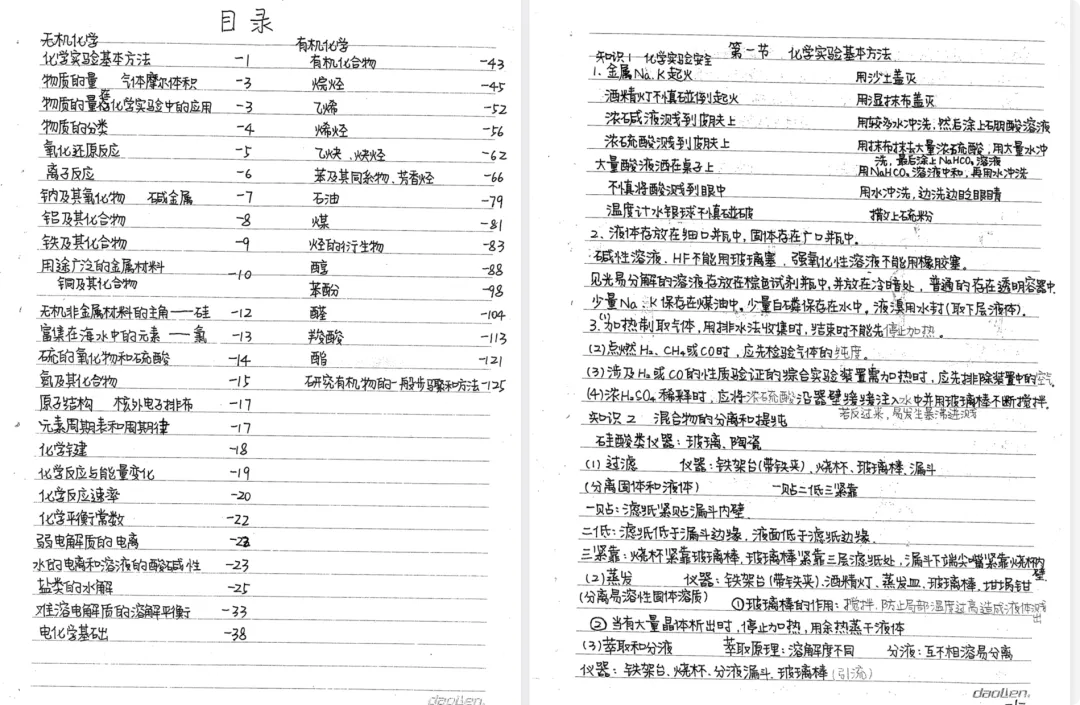 目录
无机化学
化学实验基本方法 -1
物质的量 气体摩尔体积 -3
物质的量在化学实验中的应用 -3
物质的分类 -4
氧化还原反应 -5
离子反应 -6
钠及其氧化物 碱金属 -7
铝及其化合物 -8
铁及其化合物 -9
用途广泛的金属材料 -10
铜及其化合物
无机非金属材料的主角——硅 -12
富集在海水中的元素——氯 -13
硫的氧化物和硫酸 -14
氮及其化合物 -15
原子结构 核外电子排布 -17
元素周期表和周期律 -17
化学键 -18
化学反应与能量变化 -19
化学反应速率 -20
化学平衡常数 -22
弱电解质的电离 -23
水的电离和溶液的酸碱性 -23
盐类的水解 -25
难溶电解质的溶解平衡 -33
电化学基础 -38
有机化学
有机化合物 -43
烷烃 -45
乙烯 -52
烯烃 -56
乙炔、炔烃 -62
苯及其同系物、芳香烃 -66
石油 -79
煤 -81
烃的衍生物 -83
醇 -88
苯酚 -98
醛 -104
羧酸 -113
酯 -121
研究有机物的一般步骤和方法 -125
daolien.
第一节 化学实验基本方法
知识1 化学实验安全
1. 金属Na、K起火 用沙土盖灭
酒精灯不慎碰倒起火 用湿抹布盖灭
浓碱液溅到皮肤上 用较多水冲洗,然后涂上硼酸溶液
浓硫酸溅到皮肤上 用抹布抹去大量浓硫酸,用大量水冲洗,最后涂上NaHCO₃溶液
大量酸液洒在桌子上 用NaHCO₃溶液中和,再用水冲洗
不慎将酸溅到眼中 用水冲洗,边洗边眨眼睛
温度计水银球不慎碰破 撒上硫粉
2. 液体存放在细口瓶中,固体存在广口瓶中。
碱性溶液、HF不能用玻璃塞,强氧化性溶液不能用橡胶塞。
见光易分解的溶液存放在棕色试剂瓶中,并放在冷暗处,普通的存在透明容器中
少量Na、K保存在煤油中。少量白磷保存在水中。液溴用水封(取下层液体).
3.(1)加热制取气体,用排水法收集时,结束时不能先停止加热。
(2)点燃H₂、CH₄或CO时,应先检验气体的纯度。
(3)涉及H₂或CO的性质验证的综合实验装置需加热时,应先排除装置中的空气
(4)浓H₂SO₄稀释时,应将浓硫酸沿器壁缓缓注入水中并用玻璃棒不断搅拌.
若反过来,易发生暴沸迸溅
知识2 混合物的分离和提纯
硅酸类仪器:玻璃、陶瓷
(1)过滤 仪器:铁架台(带铁夹)、烧杯、玻璃棒、漏斗
(分离固体和液体) 一贴二低三紧靠
一贴:滤纸紧贴漏斗内壁
二低:滤纸低于漏斗边缘,液面低于滤纸边缘.
三紧靠:烧杯紧靠玻璃棒、玻璃棒紧靠三层滤纸处、漏斗下端尖嘴紧靠烧杯内壁
(2)蒸发 仪器:铁架台(带铁夹)、酒精灯、蒸发皿、玻璃棒、坩埚钳
(分离易溶性固体溶质) ①玻璃棒的作用:搅拌,防止局部温度过高造成液体溅出
②当有大量晶体析出时,停止加热,用余热蒸干液体
(3)萃取和分液 萃取原理:溶解度不同 分液:互不相溶易分离
仪器:铁架台、烧杯、分液漏斗、玻璃棒(引流)
daolien.
-1-